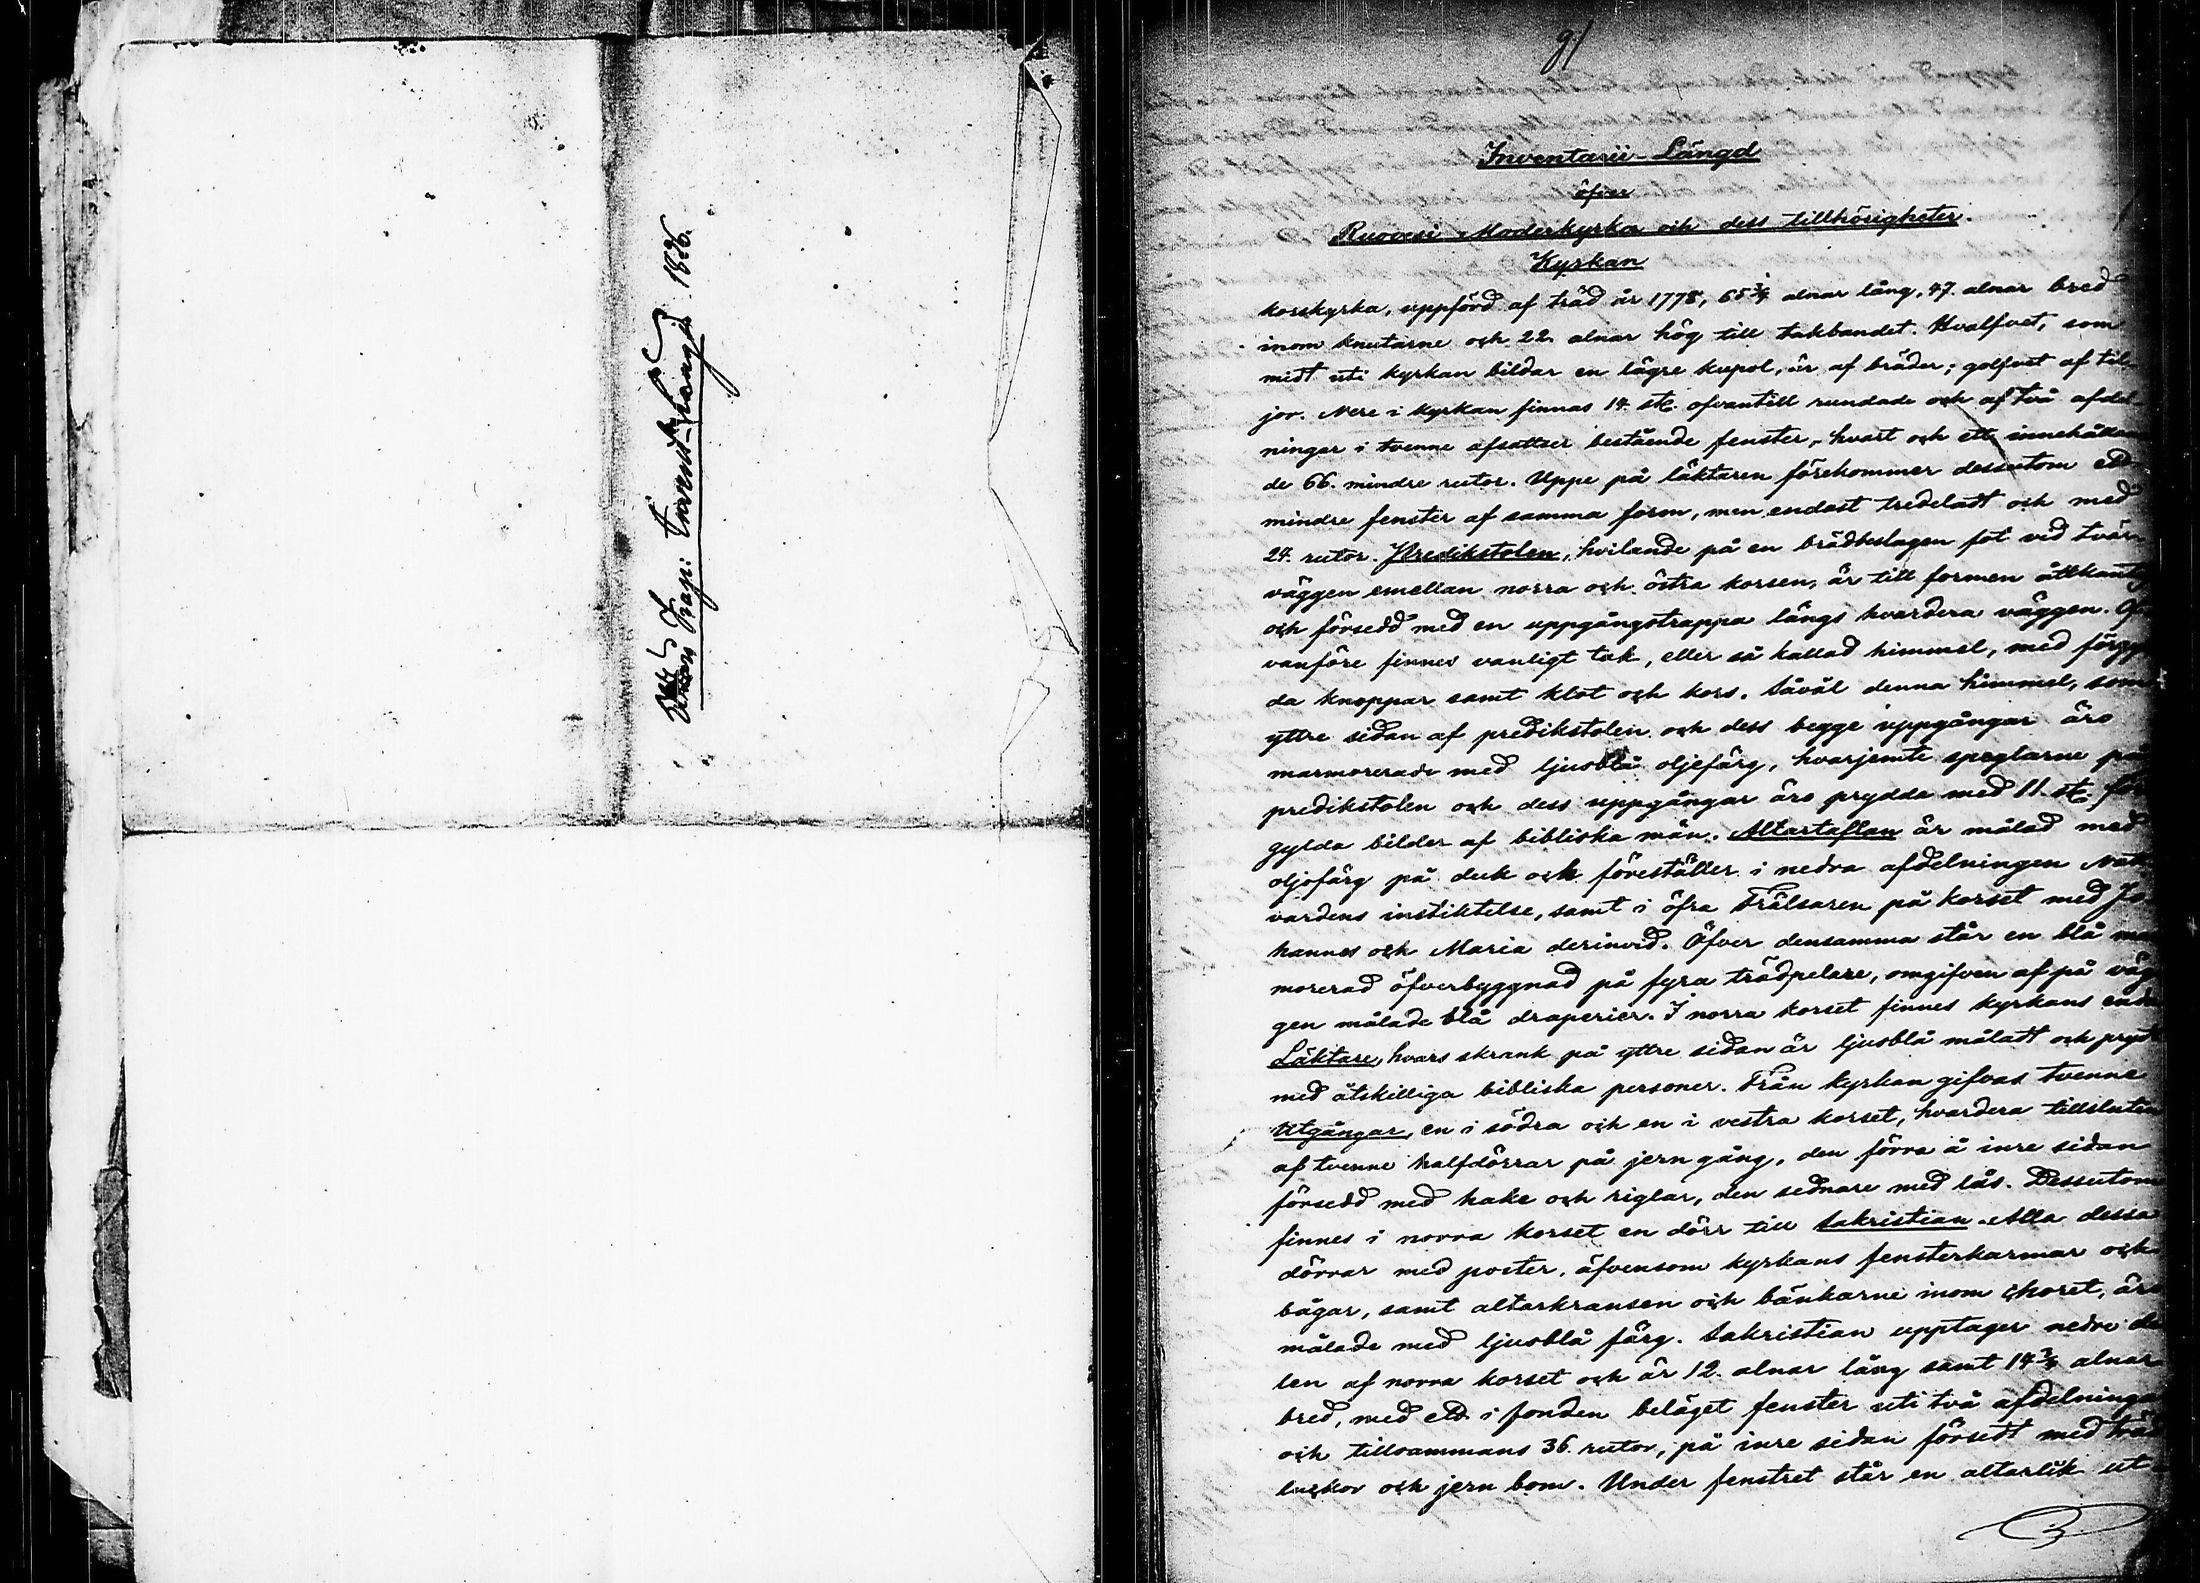 Kap: Invent: Längd. 1826.
91
Inventarii-Längd
öfver
Ruovesi Moderkyrka och dess tillhörigheter.
Kyrkan
korskyrka, uppförd af träd år 1778, 65 3/4 alnar lång, 47. alnar bred
inom knutarne och 22 alnar hög till takbandet. Hvalfvet, som
midt uti kyrkan bildar en lägre kupol, är af bräder; golfvet af til-
jor. Nere i kyrkan finnas 14. st. ofvantill rundade och af två afdel-
ningar i tvenne afsattser bestående fenster, hvart och ett innehållan
de 66. mindre rutor. Uppe på läktaren förekommer dessutom ett
mindre fenster af samma form, men endast tredeladt och med
24. rutor. Predikstolen, hvilande på en brädbeslagen fot vid tvär
väggen emellan norra och östra korsen, är till formen åttkantig
och försedd med en uppgångstrappa längs hvardera väggen. Of
vanföre finnes vanligt tak, eller så kallad himmel, med förgyl
da knoppar samt klot och kors. Såväl denna himmel, som
yttre sidan af predikstolen och dess begge uppgångar äro
marmorerade med ljusblå oljefärg, hvarjemte speglarne på
predikstolen och dess uppgångar äro prydda med 11. st. för
gylda bilder af bibliska män. Altartaflan är målad med
oljofärg på duk och föreställer i nedra afdelningen Natt
vardens instiktelse, samt i öfra Frälsaren på korset med Jo
hannes och Maria derinvid. Öfver densamma står en blå mar
morerad öfverbyggnad på fyra trädpelare, omgifven af på väg
gen målade blå draperier. I norra korset finnes kyrkans enda
Läktare, hvars skrank på yttre sidan är ljusblå måladt och prydt
med åtskilliga bibliska personer. Från kyrkan gifvas tvenne
Utgångar, en i södra och en i vestra korset, hvardera tillsluten
af tvenne halfdörrar på jern gång, den förra å inre sidan
försedd med hake och riglar, den sednare med lås. Dessutom
finnes i norra korset en dörr till Sakristian. Alla dessa
dörrar med poster, äfvensom kyrkans fensterkarmar och
bågar, samt altarkransen och bänkarne inom choret, äro
målade med ljusblå färg. Sakristian upptager nedre de
len af norra korset och är 12. alnar lång samt 14 3/4 alnar
bred, med ett i fonden beläget fenster uti två afdelningar
och tillsammans 36. rutor, på inre sidan försedt med träd
luckor och jern bom. Under fenstret står en altarlik ut-